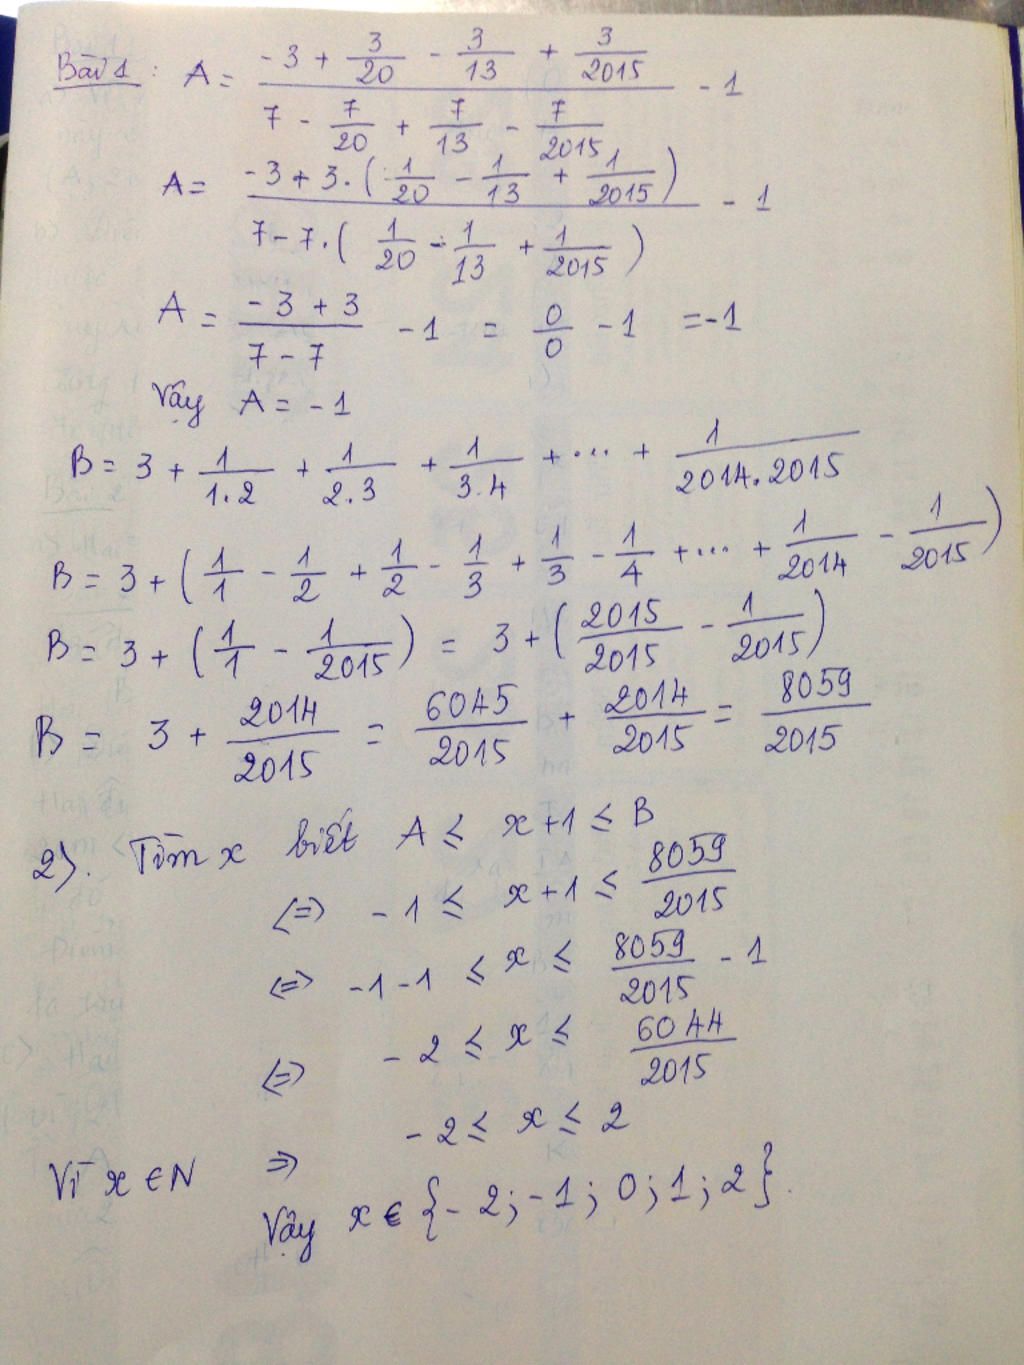 Bài 1 : A = (-3 + 3/20 - 3/13 + 3/2015) / (7 - 7/20 + 7/13 - 7/2015) - 1
A = (-3 + 3.(1/20 - 1/13 + 1/2015)) / (7 - 7.(1/20 - 1/13 + 1/2015)) - 1
A = (-3 + 3) / (7 - 7) - 1 = 0/0 - 1 = -1
Vậy A = -1
B = 3 + 1/1.2 + 1/2.3 + 1/3.4 + ... + 1/2014.2015
B = 3 + (1/1 - 1/2 + 1/2 - 1/3 + 1/3 - 1/4 + ... + 1/2014 - 1/2015)
B = 3 + (1/1 - 1/2015) = 3 + (2015/2015 - 1/2015)
B = 3 + 2014/2015 = 6045/2015 + 2014/2015 = 8059/2015
2). Tìm x biết A ≤ x+1 ≤ B
<=> -1 ≤ x+1 ≤ 8059/2015
<=> -1-1 ≤ x ≤ 8059/2015 - 1
<=> -2 ≤ x ≤ 6044/2015
=> -2 ≤ x ≤ 2
Vì x ∈ N
Vậy x ∈ {-2; -1; 0; 1; 2}.